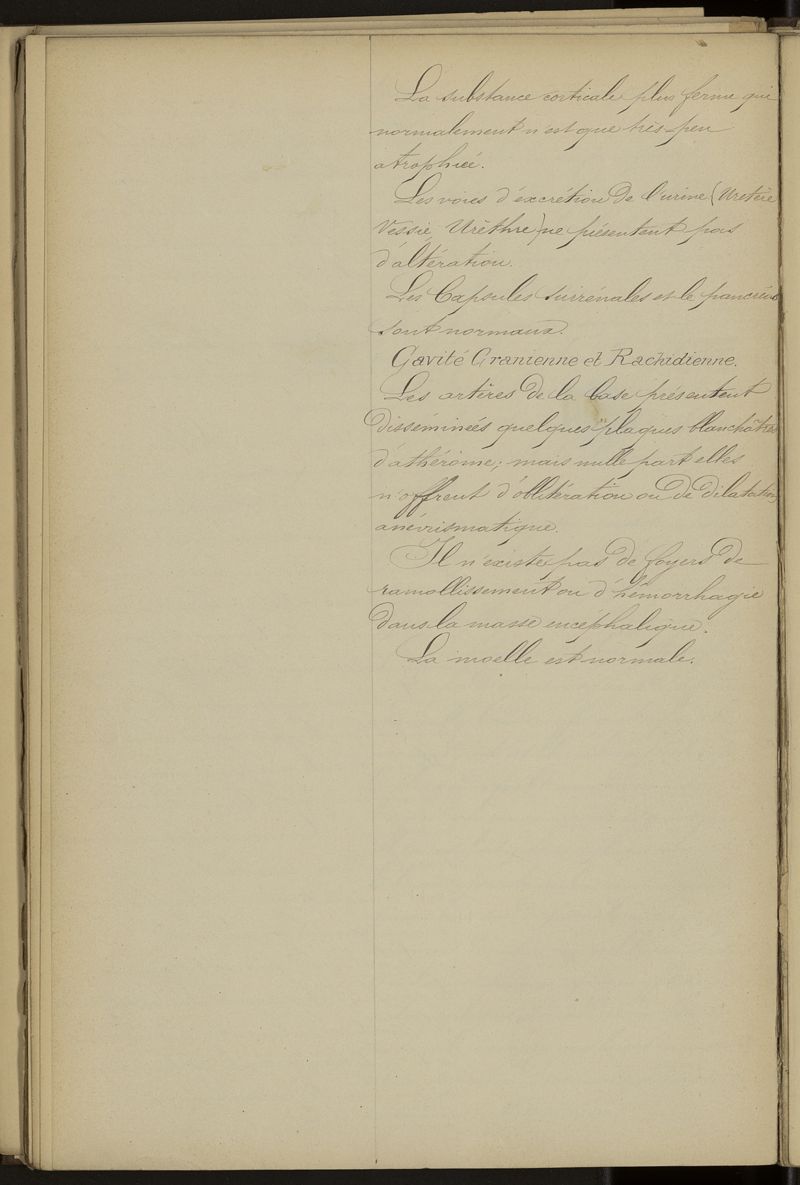 La substance corticale plus ferme que
normalement n'est que très-peu
atrophiée.
Les voies d'excrétion de l'urine (Uretère
Vessie Urèthre) ne présentent pas
d'altération.
Les Capsules surrénales et le pancréas
sont normaux.
Cavité Cranienne et Rachidienne.
Les artères de la base présentent
disséminées quelques plaques blanchâtres
d'athérôme; mais nulle part elles
n'offrent d'oblitération ou de dilatation
anévrismatique.
Il n'existe pas de foyers de
ramollissement ou d'hémorrhagie
dans la masse encéphalique.
La moelle est normale.